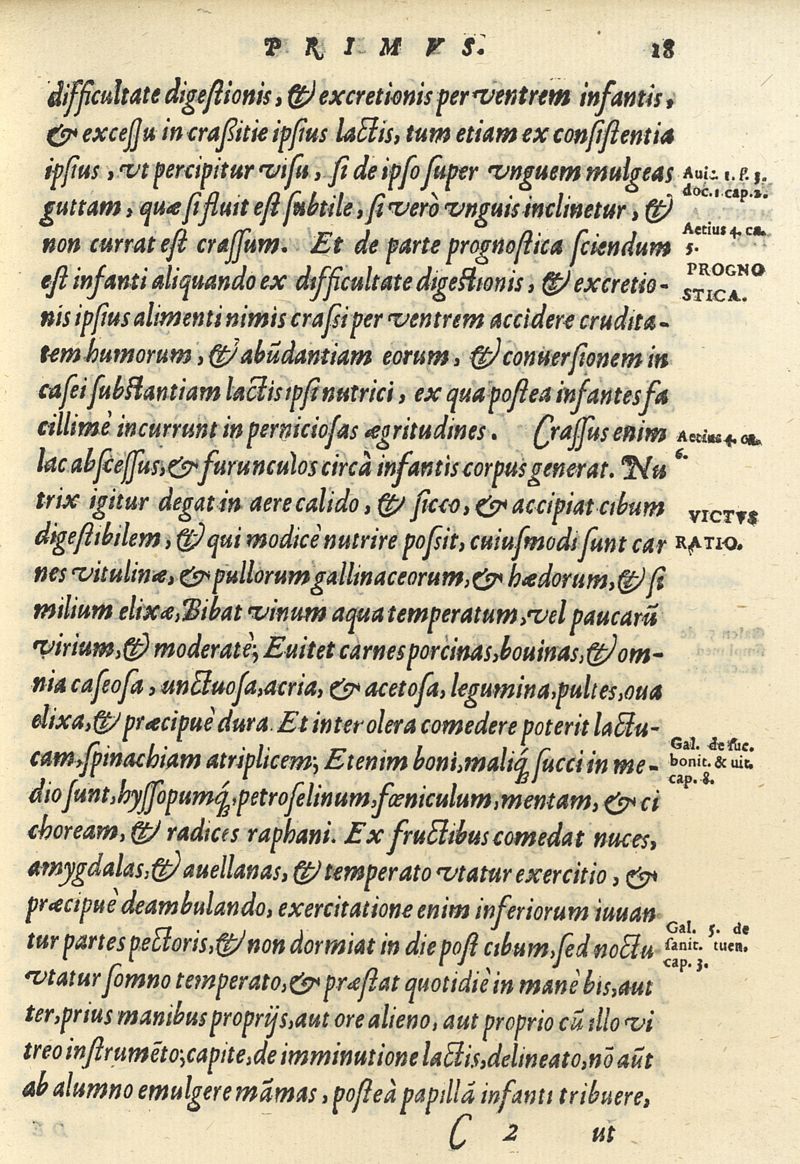 PRIMVS. 18
difficultate digestionis, & excretionis per ventrem infantis,
& excessu in crassitie ipsius lactis, tum etiam ex consistentia
ipsius, vt percipitur visu, si de ipso super vnguem mulgeas
guttam, quæ si fluit est subtile, si verò vnguis inclinetur, &
non currat est crassum. Et de parte prognostica sciendum
est infanti aliquando ex difficultate digestionis, & excretio-
nis ipsius alimenti nimis crassi per ventrem accidere crudita-
tem humorum, & abũdantiam eorum, & conuersionem in
casei substantiam lactis ipsi nutrici, ex qua postea infantes fa
cillimè incurrunt in perniciosas ægritudines. Crassus enim
lac abscessus, & furunculos circà infantis corpus generat. Nu
trix igitur degat in aere calido, & sicco, & accipiat cibum
digestibilem, & qui modicè nutrire possit, cuiusmodi sunt car
nes vitulinæ, & pullorum gallinaceorum, & hædorum, & si
milium elixæ, Bibat vinum aqua temperatum, vel paucarũ
virium, & moderatè; Euitet carnes porcinas, bouinas, & om-
nia caseosa, unctuosa, acria, & acetosa, legumina, pultes, oua
elixa, & præcipuè dura. Et inter olera comedere poterit lactu-
cam, spinachiam atriplicem; Etenim boni, maliq́; succi in me-
dio sunt, hyssopumq́;, petroselinum, fœniculum, mentam, & ci
choream, & radices raphani. Ex fructibus comedat nuces,
amygdalas, & auellanas, & temperato vtatur exercitio, &
præcipuè deambulando, exercitatione enim inferiorum iuuan
tur partes pectoris, & non dormiat in die post cibum, sed noctu
vtatur somno temperato, & præstat quotidiè in manè bis, aut
ter, prius manibus proprijs, aut ore alieno, aut proprio cũ illo vi
treo instrumẽto; capite, de imminutione lactis, delineato, nõ aũt
ab alumno emulgere mãmas, posteà papillã infanti tribuere,
C 2 ut
Auic. 1. p. 3.
doc. 1 cap. 2.
Aetius 4. ca.
5.
PROGNO
STICA.
Aetius 4. ca.
6.
VICTVS
RATIO.
Gal. de suc.
bonit. & uit.
cap. 8.
Gal. 5. de
sanit. tuen.
cap. 3.